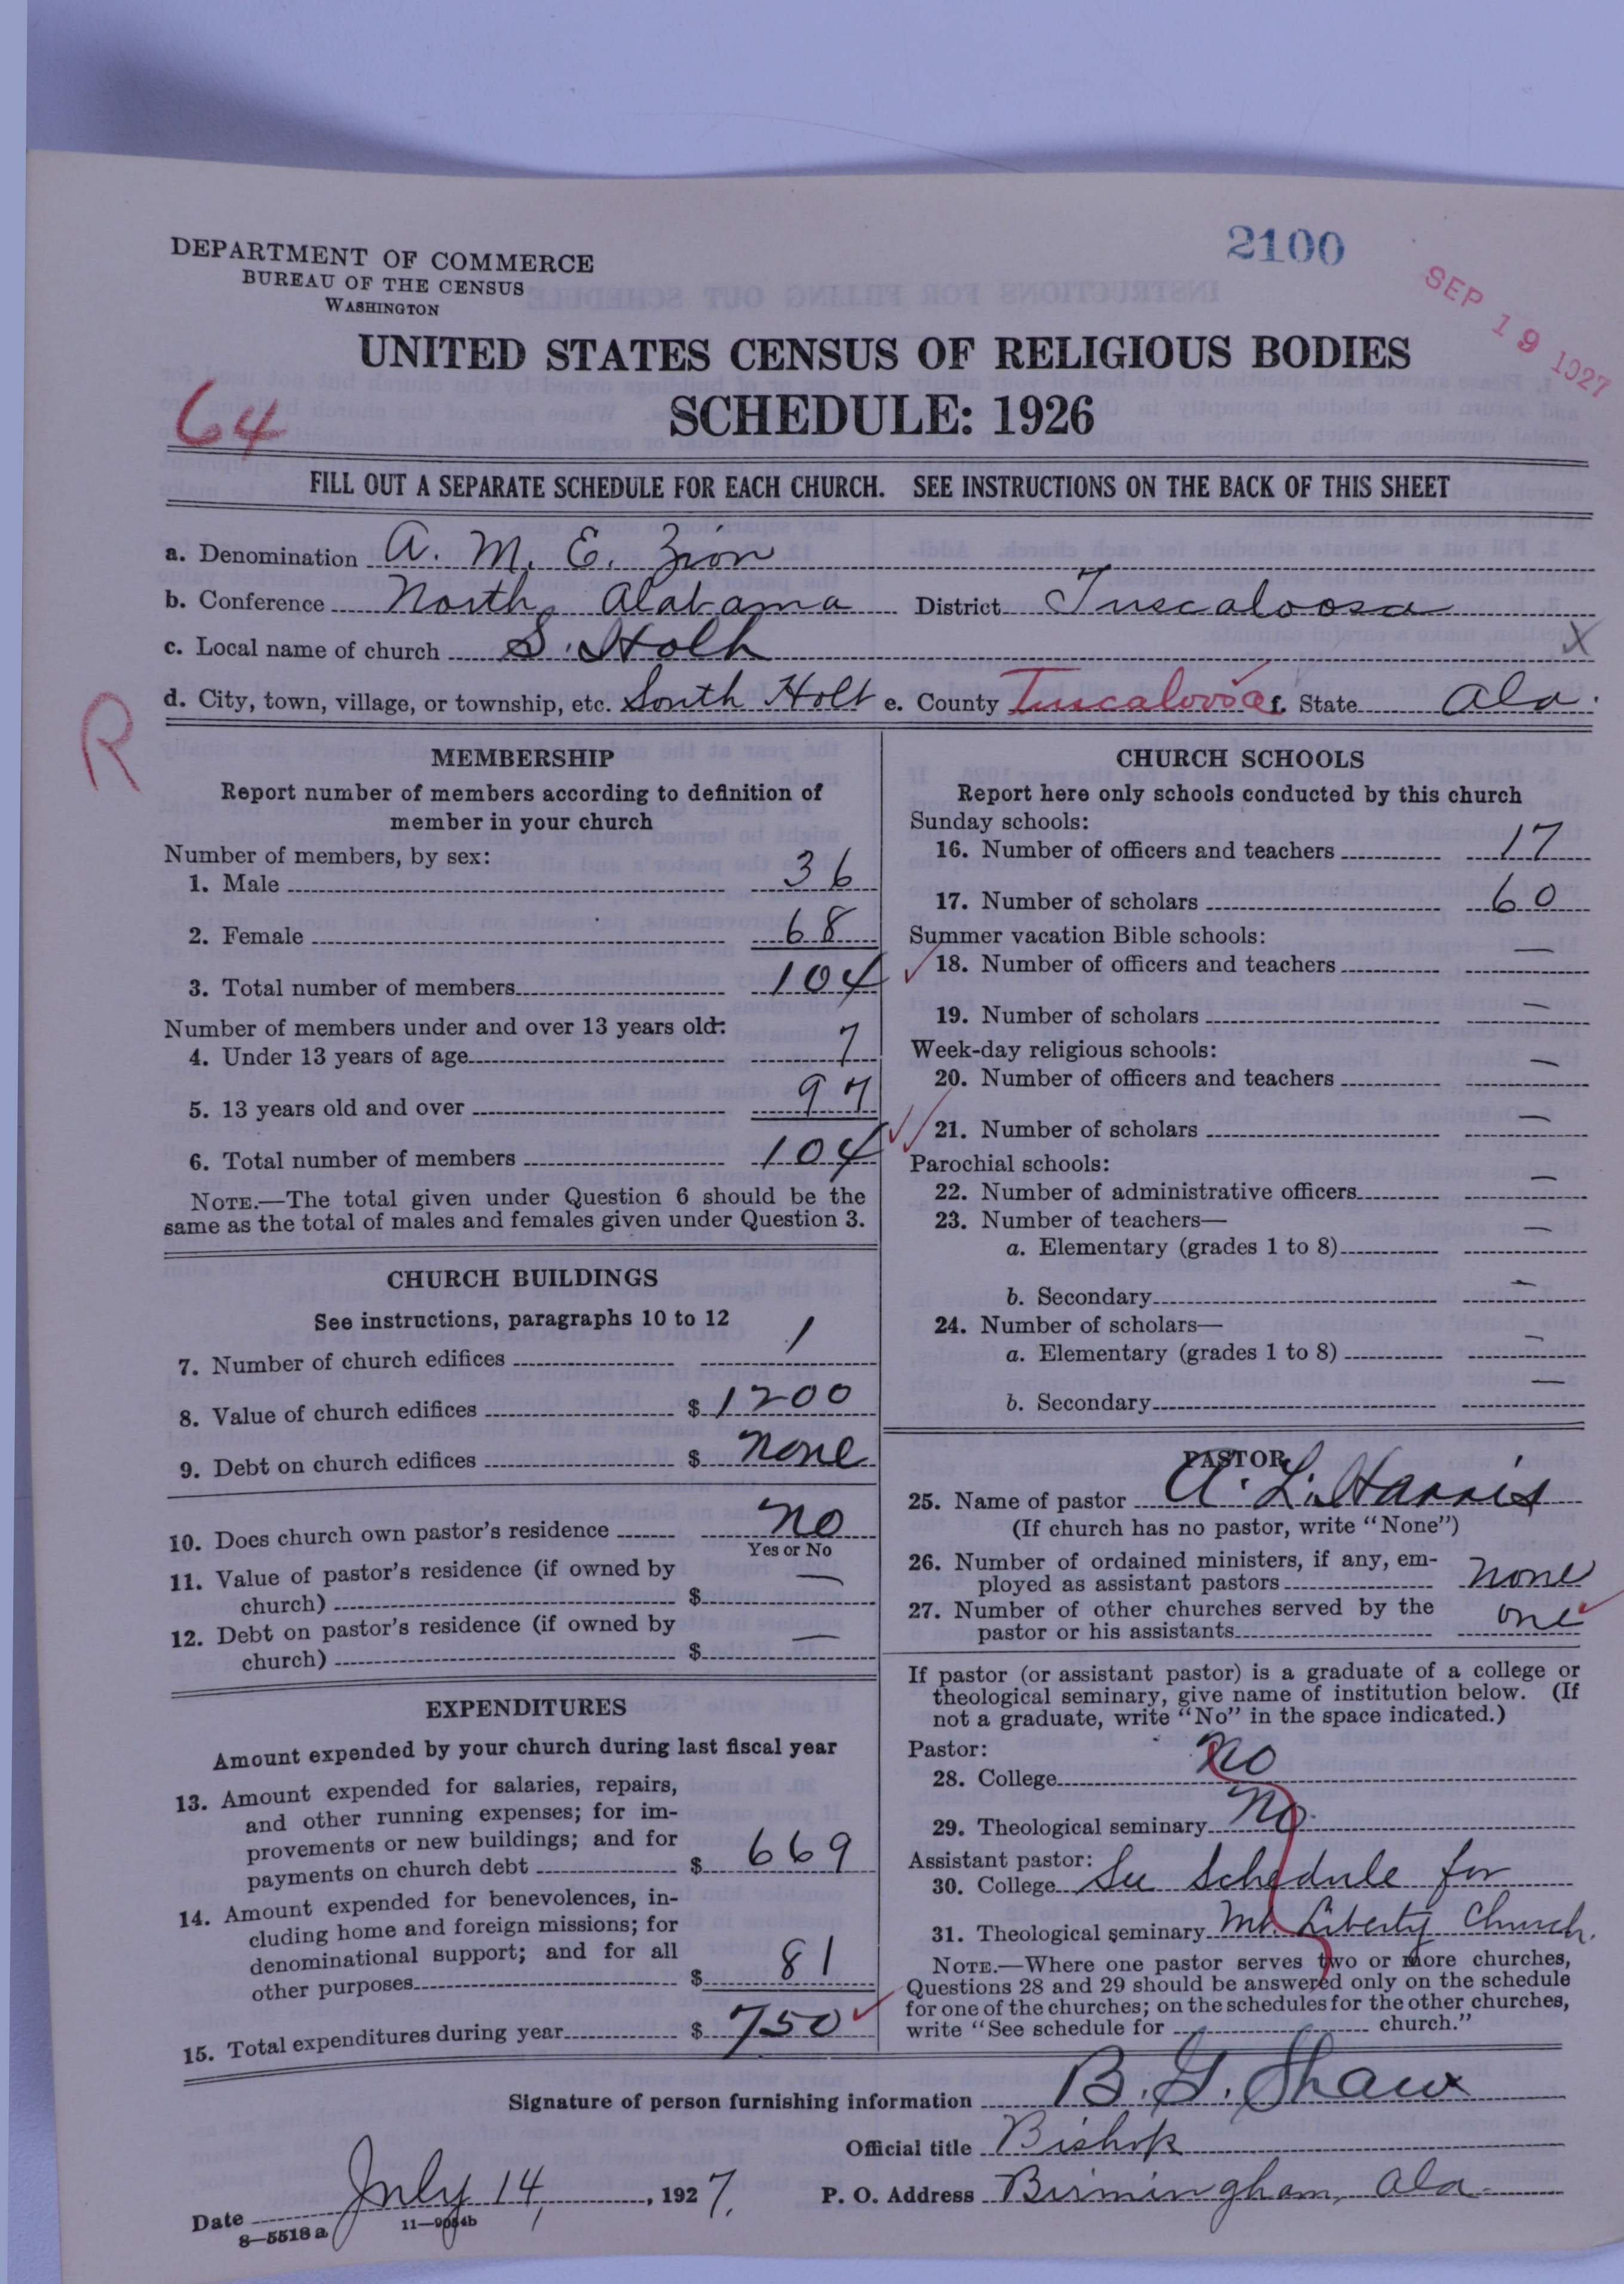 DEPARTMENT OF COMMERCE
BUREAU OF THE CENSUS
WASHINGTON
2100
SEP 19 1927
UNITED STATES CENSUS OF RELIGIOUS BODIES
SCHEDULE: 1926
64
FILL OUT A SEPARATE SCHEDULE FOR EACH CHURCH. SEE INSTRUCTIONS ON THE BACK OF THIS SHEET
a. Denomination A. M. E. Zion
b. Conference North Alabama District Tuscaloosa
c. Local name of church S. Holh X
d. City, town, village, or township, etc. South Holt e. County Tuscaloosa f. State Ala.
R
MEMBERSHIP
Report number of members according to definition of
member in your church
Number of members, by sex:
1. Male 36
2. Female 68
3. Total number of members 104
Number of members under and over 13 years old:
4. Under 13 years of age 7
5. 13 years old and over 97
6. Total number of members 104
NOTE.—The total given under Question 6 should be the
same as the total of males and females given under Question 3.
CHURCH BUILDINGS
See instructions, paragraphs 10 to 12
7. Number of church edifices 1
8. Value of church edifices $ 1200
9. Debt on church edifices $ none
10. Does church own pastor's residence no
Yes or No
11. Value of pastor's residence (if owned by
church) $ —
12. Debt on pastor's residence (if owned by
church) $ —
EXPENDITURES
Amount expended by your church during last fiscal year
13. Amount expended for salaries, repairs,
and other running expenses; for im-
provements or new buildings; and for
payments on church debt $ 669
14. Amount expended for benevolences, in-
cluding home and foreign missions; for
denominational support; and for all
other purposes $ 81
15. Total expenditures during year $ 750
CHURCH SCHOOLS
Report here only schools conducted by this church
Sunday schools:
16. Number of officers and teachers 17
17. Number of scholars 60
Summer vacation Bible schools:
18. Number of officers and teachers —
19. Number of scholars —
Week-day religious schools:
20. Number of officers and teachers —
21. Number of scholars —
Parochial schools:
22. Number of administrative officers —
23. Number of teachers—
a. Elementary (grades 1 to 8) —
b. Secondary —
24. Number of scholars—
a. Elementary (grades 1 to 8) —
b. Secondary —
PASTOR
25. Name of pastor A. L. Harris
(If church has no pastor, write "None")
26. Number of ordained ministers, if any, em-
ployed as assistant pastors none
27. Number of other churches served by the
pastor or his assistants one
If pastor (or assistant pastor) is a graduate of a college or
theological seminary, give name of institution below. (If
not a graduate, write "No" in the space indicated.)
Pastor:
28. College no
29. Theological seminary no
Assistant pastor:
30. College See Schedule for
31. Theological seminary Mt. Liberty Church.
NOTE.—Where one pastor serves two or more churches,
Questions 28 and 29 should be answered only on the schedule
for one of the churches; on the schedules for the other churches,
write "See schedule for church."
Signature of person furnishing information B. G. Shaw
Official title Bishop
Date July 14, 1927. P. O. Address Birmingham, Ala.
8—5518a 11—9054b